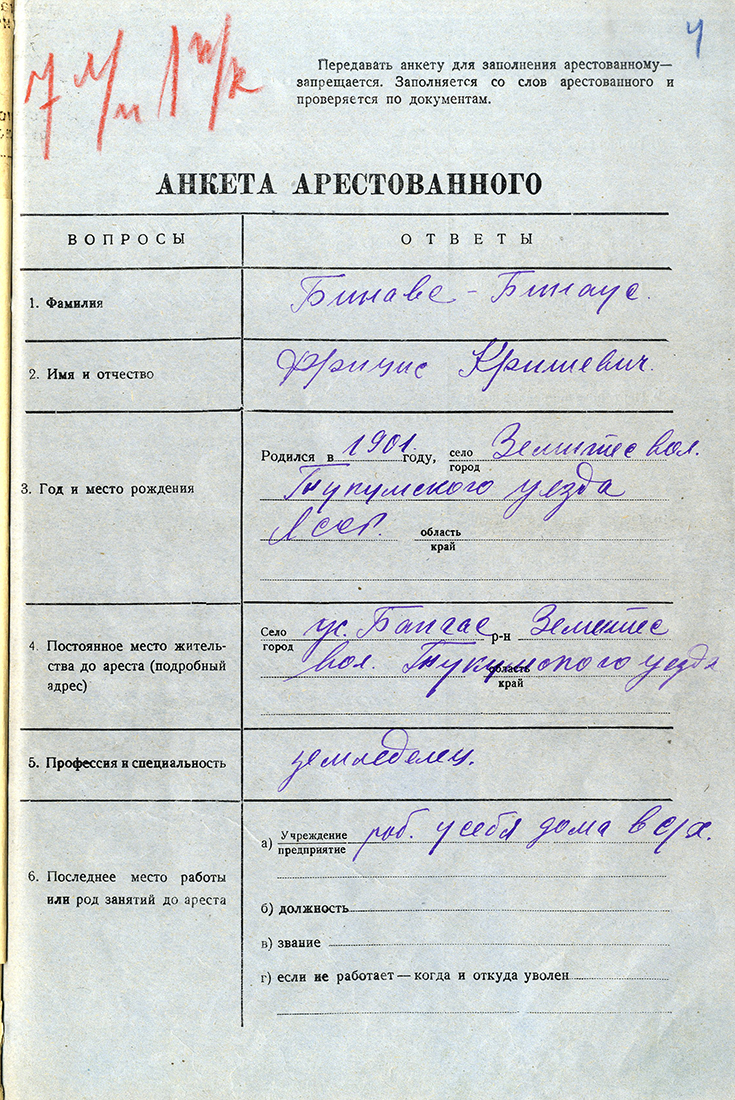 4
Передавать анкету для заполнения арестованному—
запрещается. Заполняется со слов арестованного и
проверяется по документам.
АНКЕТА АРЕСТОВАННОГО
ВОПРОСЫ
ОТВЕТЫ
1. Фамилия
Бинаве - Бинаус.
2. Имя и отчество
Фрицис Кришевич.
3. Год и место рождения
Родился в 1901. году, село город Земитес вол.
Тукумского уезда
ЛССР. область край
4. Постоянное место житель-
ства до ареста (подробный
адрес)
Село город ус. р-н Земитес
вол. Тукумского уезда
область край
5. Профессия и специальность
земледелец.
6. Последнее место работы
или род занятий до ареста
а) Учреждение предприятие раб. у себя дома в с/х.
б) должность
в) звание
г) если не работает — когда и откуда уволен